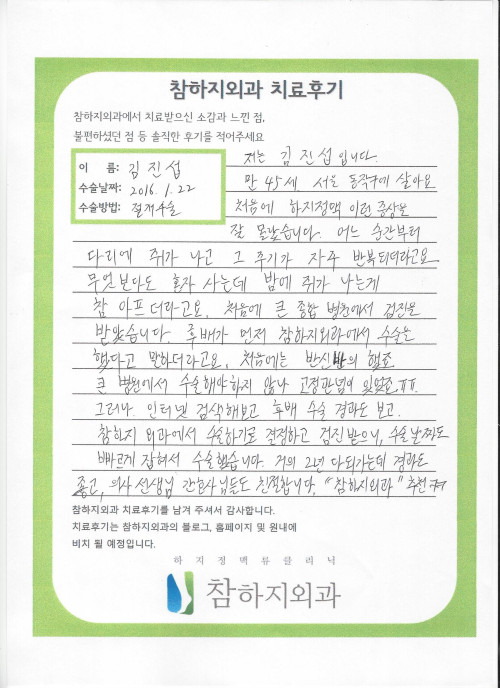 참하지외과 치료후기
참하지외과에서 치료받으신 소감과 느낀 점,
불편하셨던 점 등 솔직한 후기를 적어주세요
이 름: 김진섭
수술날짜: 2016. 1. 22
수술방법: 절제수술
저는 김진섭입니다.
만 45세 서울 동작구에 살아요
처음에 하지정맥 이런 증상을
잘 몰랐습니다. 어느 순간부터
다리에 쥐가 나고 그 주기가 자주 반복되더라고요
무엇보다도 혼자 사는데 밤에 쥐가 나는게
참 아프더라고요. 처음에 큰 종합 병원에서 검진을
받았습니다. 후배가 먼저 참하지외과에서 수술을
했다고 말하더라고요. 처음에는 반신반의 했죠
큰 병원에서 수술해야하지 않나 고정관념이 있었죠ㅠㅠ.
그러나 인터넷 검색해보고 후배 수술 경과도 보고.
참하지 외과에서 수술하기로 결정하고 검진받으니, 수술날짜도
빠르게 잡혀서 수술했습니다. 거의 2년 다되가는데 경과도
좋고, 의사 선생님 간호사님들도 친절합니다. "참하지외과" 추천
참하지외과 치료후기를 남겨 주셔서 감사합니다.
치료후기는 참하지외과의 블로그, 홈페이지 및 원내에
비치 될 예정입니다.
하지정맥류클리닉
참하지외과